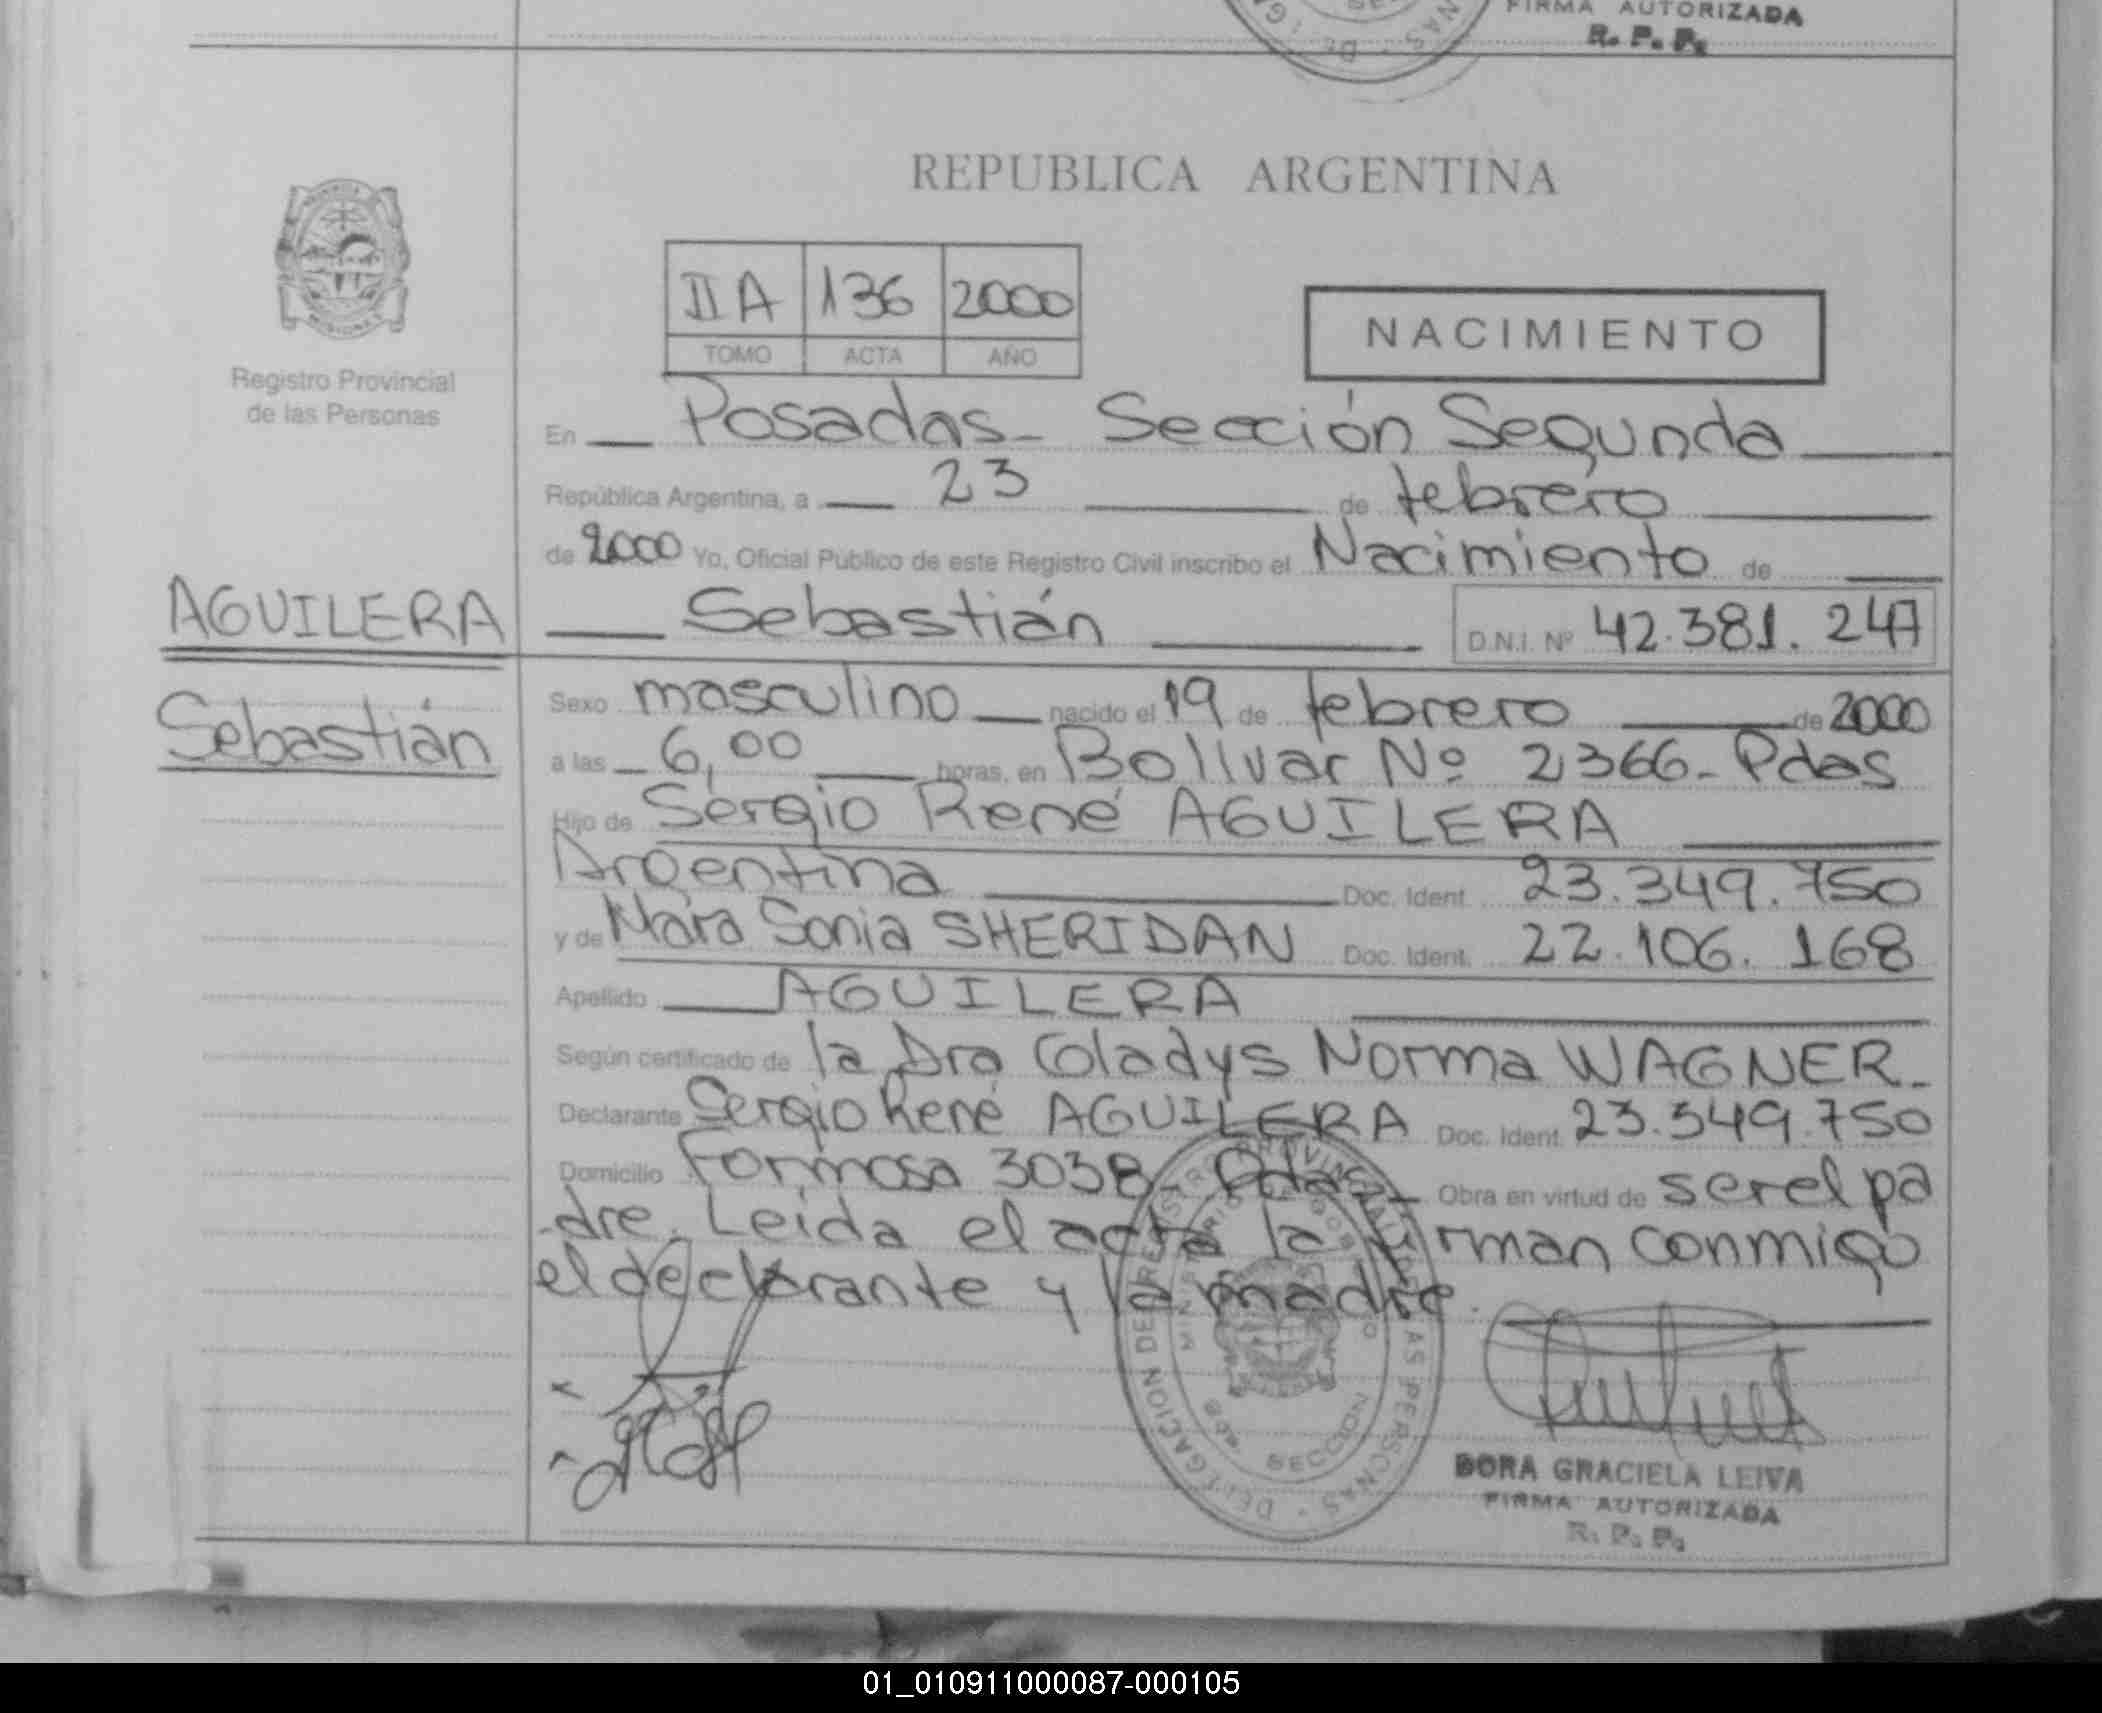 FIRMA AUTORIZADA
R. P. P.
REPUBLICA ARGENTINA
II A 136 2000
TOMO ACTA AÑO
NACIMIENTO
Registro Provincial
de las Personas
En Posadas - Sección Segunda
República Argentina, a 23 de febrero
de 2000 Yo, Oficial Público de este Registro Civil inscribo el Nacimiento de
AGUILERA
Sebastián D.N.I. Nº 42.381.247
Sebastián
Sexo masculino nacido el 19 de febrero de 2000
a las 6,00 horas, en Bolívar Nº 2366 - Pdas
Hijo de Sergio René AGUILERA
Argentina Doc. Ident. 23.349.750
y de Sonia SHERIDAN Doc. Ident. 22.106.168
Apellido AGUILERA
Según certificado de la Dra Gladys Norma WAGNER -
Declarante Sergio René AGUILERA Doc. Ident. 23.349.750
Domicilio Formosa 3038 - Pdas - Obra en virtud de ser el pa
dre. Leída el acta la firman conmigo
el declarante y la madre.
DELEGACION DE REGISTRO PROVINCIAL DE LAS PERSONAS
SECCION
DORA GRACIELA LEIVA
FIRMA AUTORIZADA
R. P. P.
01_010911000087-000105